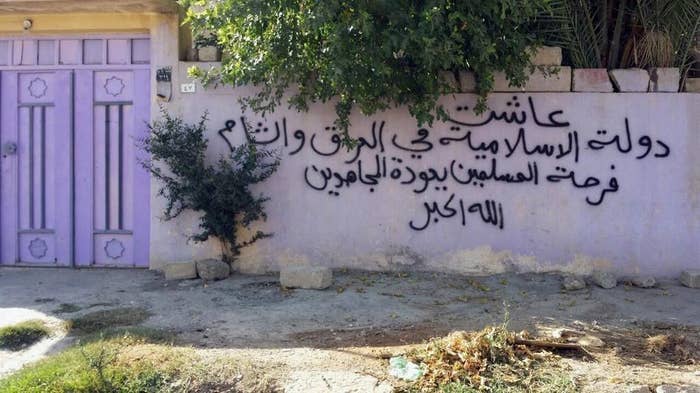 عاشت
دولة الاسلامية في العراق والشام
فرحة المسلمين بعودة المجاهدين
الله اكبر